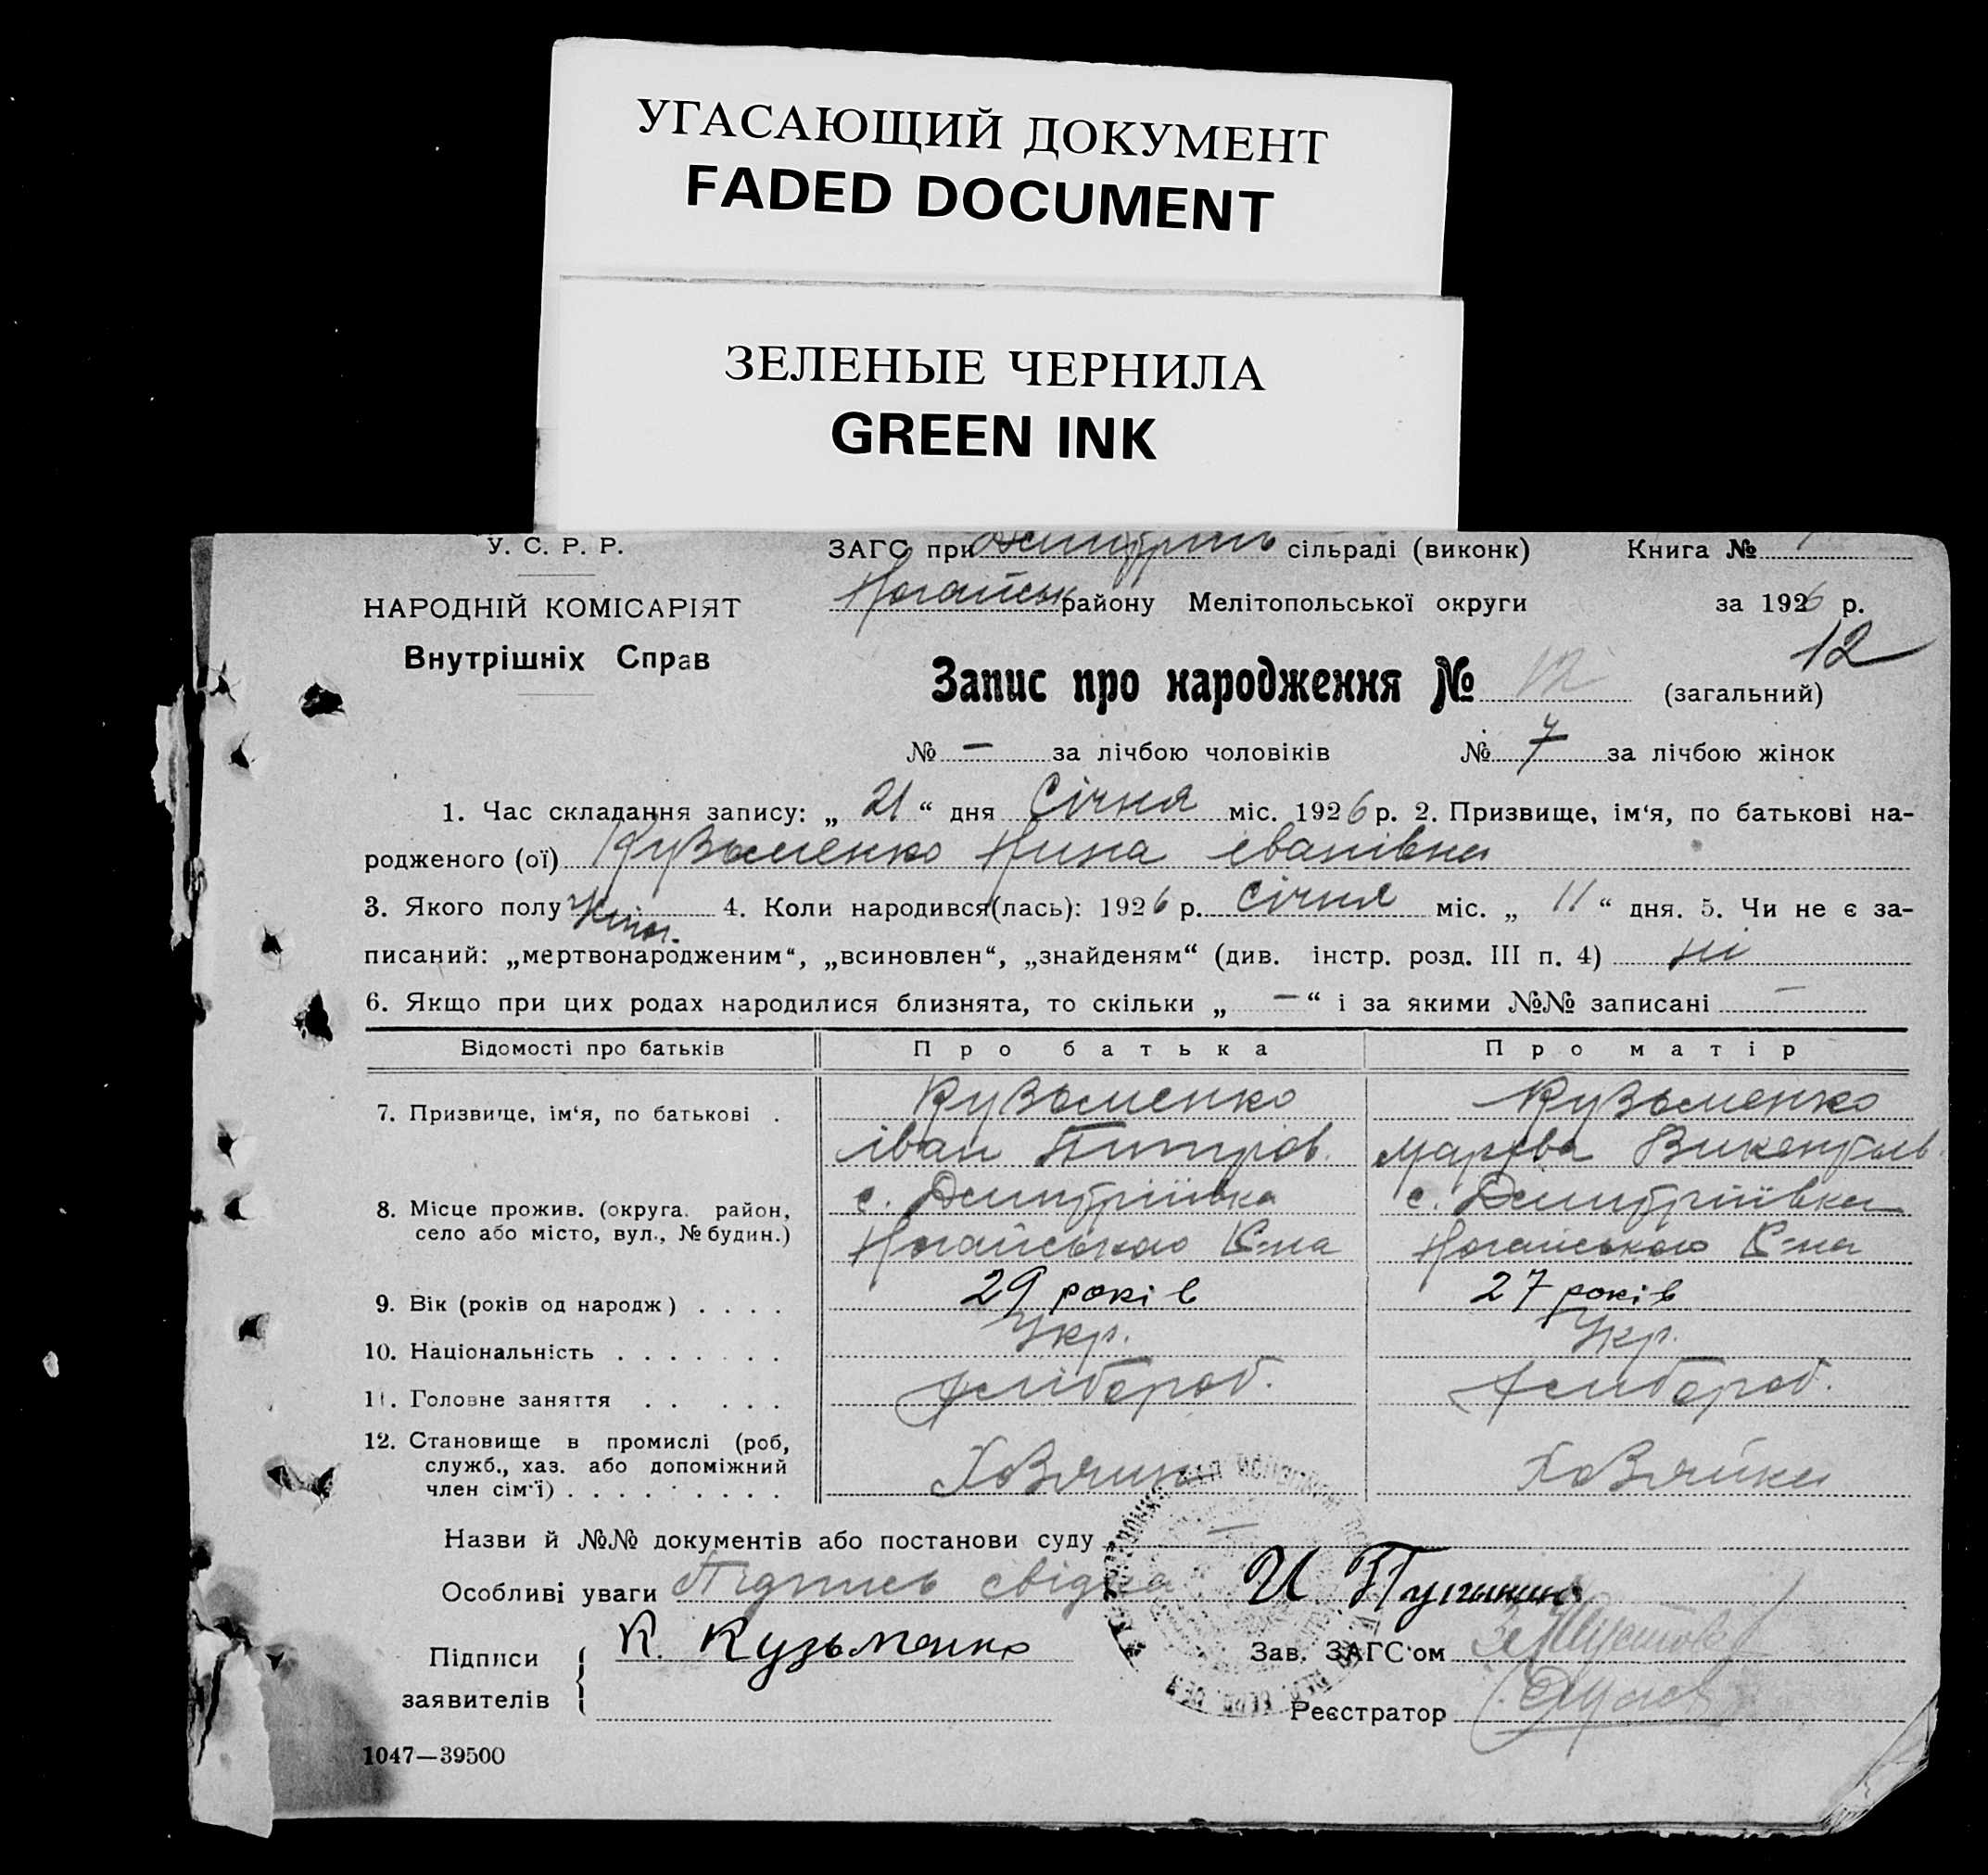 УГАСАЮЩИЙ ДОКУМЕНТ
FADED DOCUMENT
ЗЕЛЕНЫЕ ЧЕРНИЛА
GREEN INK
У. С. Р. Р.
НАРОДНІЙ КОМІСАРІЯТ
Внутрішніх Справ
ЗАГС при сільраді (виконк) Книга №
Ногайськ району Мелітопольської округи за 1926 р.
12
Запис про народження № 12 (загальний)
№ — за лічбою чоловіків № 7 за лічбою жінок
1. Час складання запису: „ 21 “ дня Січня міс. 1926 р. 2. Призвище, ім‘я, по батькові на-
родженого (ої) Кузьменко Нина Іванівна
3. Якого полу жіноч. 4. Коли народився(лась): 1926 р. Січня міс. „ 11 “ дня. 5. Чи не є за-
писаний: „мертвонародженим“, „всиновлен“, „знайденям“ (див. інстр. розд. III п. 4) ні
6. Якщо при цих родах народилися близнята, то скільки „ — “ і за якими №№ записані —
Відомості про батьків Про батька Про матір
7. Призвище, ім‘я, по батькові . Кузьменко Кузьменко
Іван Питров.
8. Місце прожив. (округа. район, с. Дмитріївка с. Дмитріївка
село або місто, вул., № будин.) Ногайського Р-на Ногайського Р-на
9. Вік (років од народж) . . . . 29 років 27 років
10. Національність . . . . . . . Укр. Укр.
11. Головне заняття . . . . . Хлібороб. Хлібороб.
12. Становище в промислі (роб,
служб., хаз. або допоміжний Хозяин Хозяйка
член сім‘ї) . . . . . . . . .
Назви й №№ документів або постанови суду —
Особливі уваги Підпись свідка И
Підписи К. Кузьменко Зав. ЗАГС‘ом
заявителів Реєстратор
1047—39500